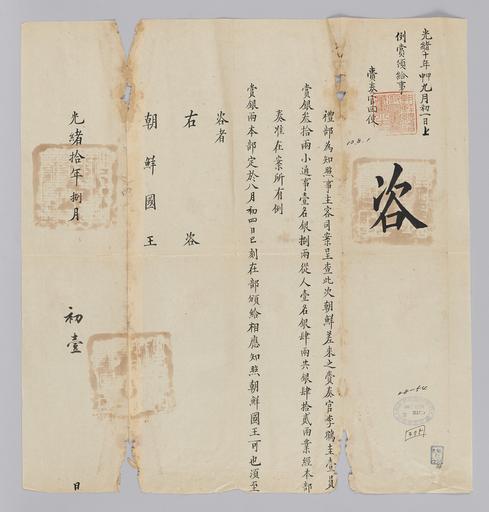 光緒十年甲申九月初一日上
例賞頒給事
賫奏官回便
咨
禮部為知照事主客司案呈查此次朝鮮差來之賫奏官李鶴圭壹員
賞銀叁拾兩小通事壹名銀捌兩從人壹名銀肆兩共銀肆拾貳兩業經本部
奏准在案所有例
賞銀兩本部定於八月初四日巳刻在部頒給相應知照朝鮮國王可也須至
咨者
右咨
朝鮮國王
光緒拾年捌月初壹日